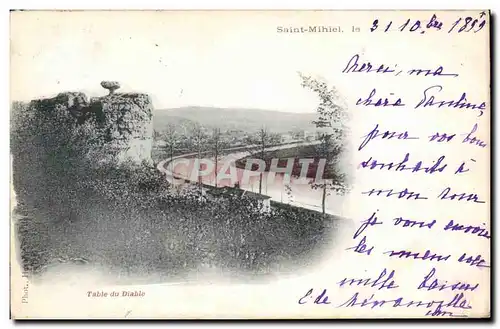 Saint-Mihiel, le 31 10bre 1899
Merci, ma
chère Pauline,
pour vos bons
souhaits à
mon tour
je vous envoie
les miens avec
mille baisers
CPARAMA
Table du Diable
Phot.